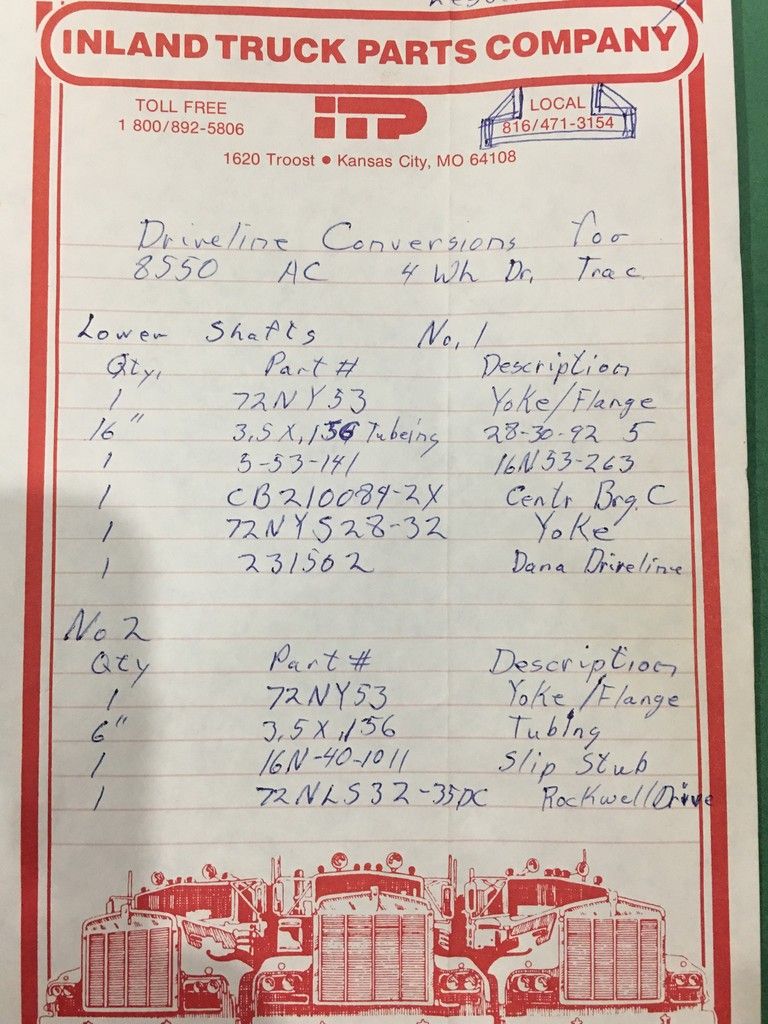 INLAND TRUCK PARTS COMPANY
TOLL FREE
1 800/892-5806
ITP
LOCAL
816/471-3154
1620 Troost • Kansas City, MO 64108
Driveline Conversions for
8550 AC 4 Wh Dr. Trac
Lower Shafts No. 1
Qty. Part # Description
1 72NY53 Yoke/Flange
16" 3.5 X .156 Tubeing 28-30-92 5
1 5-53-141 16N53-263
1 CB210084-2X Centr Brg. C
1 72NYS28-32 Yoke
1 231502 Dana Driveline
No 2
Qty Part # Description
1 72NY53 Yoke/Flange
6" 3.5 X .156 Tubing
1 16N-40-1011 Slip Stub
1 72NLS32-35DC Rockwell/Drive